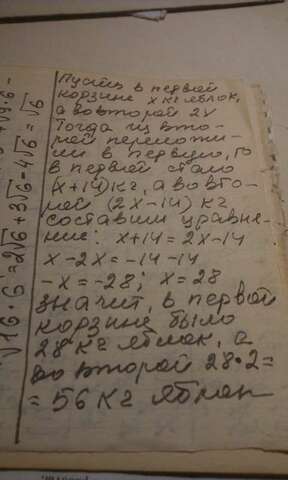 Пусть в первой
корзине x кг яблок,
а во второй 2x
Тогда из вто-
рой переложи-
ли в первую, то
в первой стало
(x+14) кг, а во вто-
рой (2x-14) кг,
составим уравне-
ние: x+14=2x-14
x-2x=-14-14
-x=-28; x=28
значит, в первой
корзине было
28 кг яблок, а
во второй 28·2=
=56 кг яблок
√16·6=2√6+3√6-4√6=√6